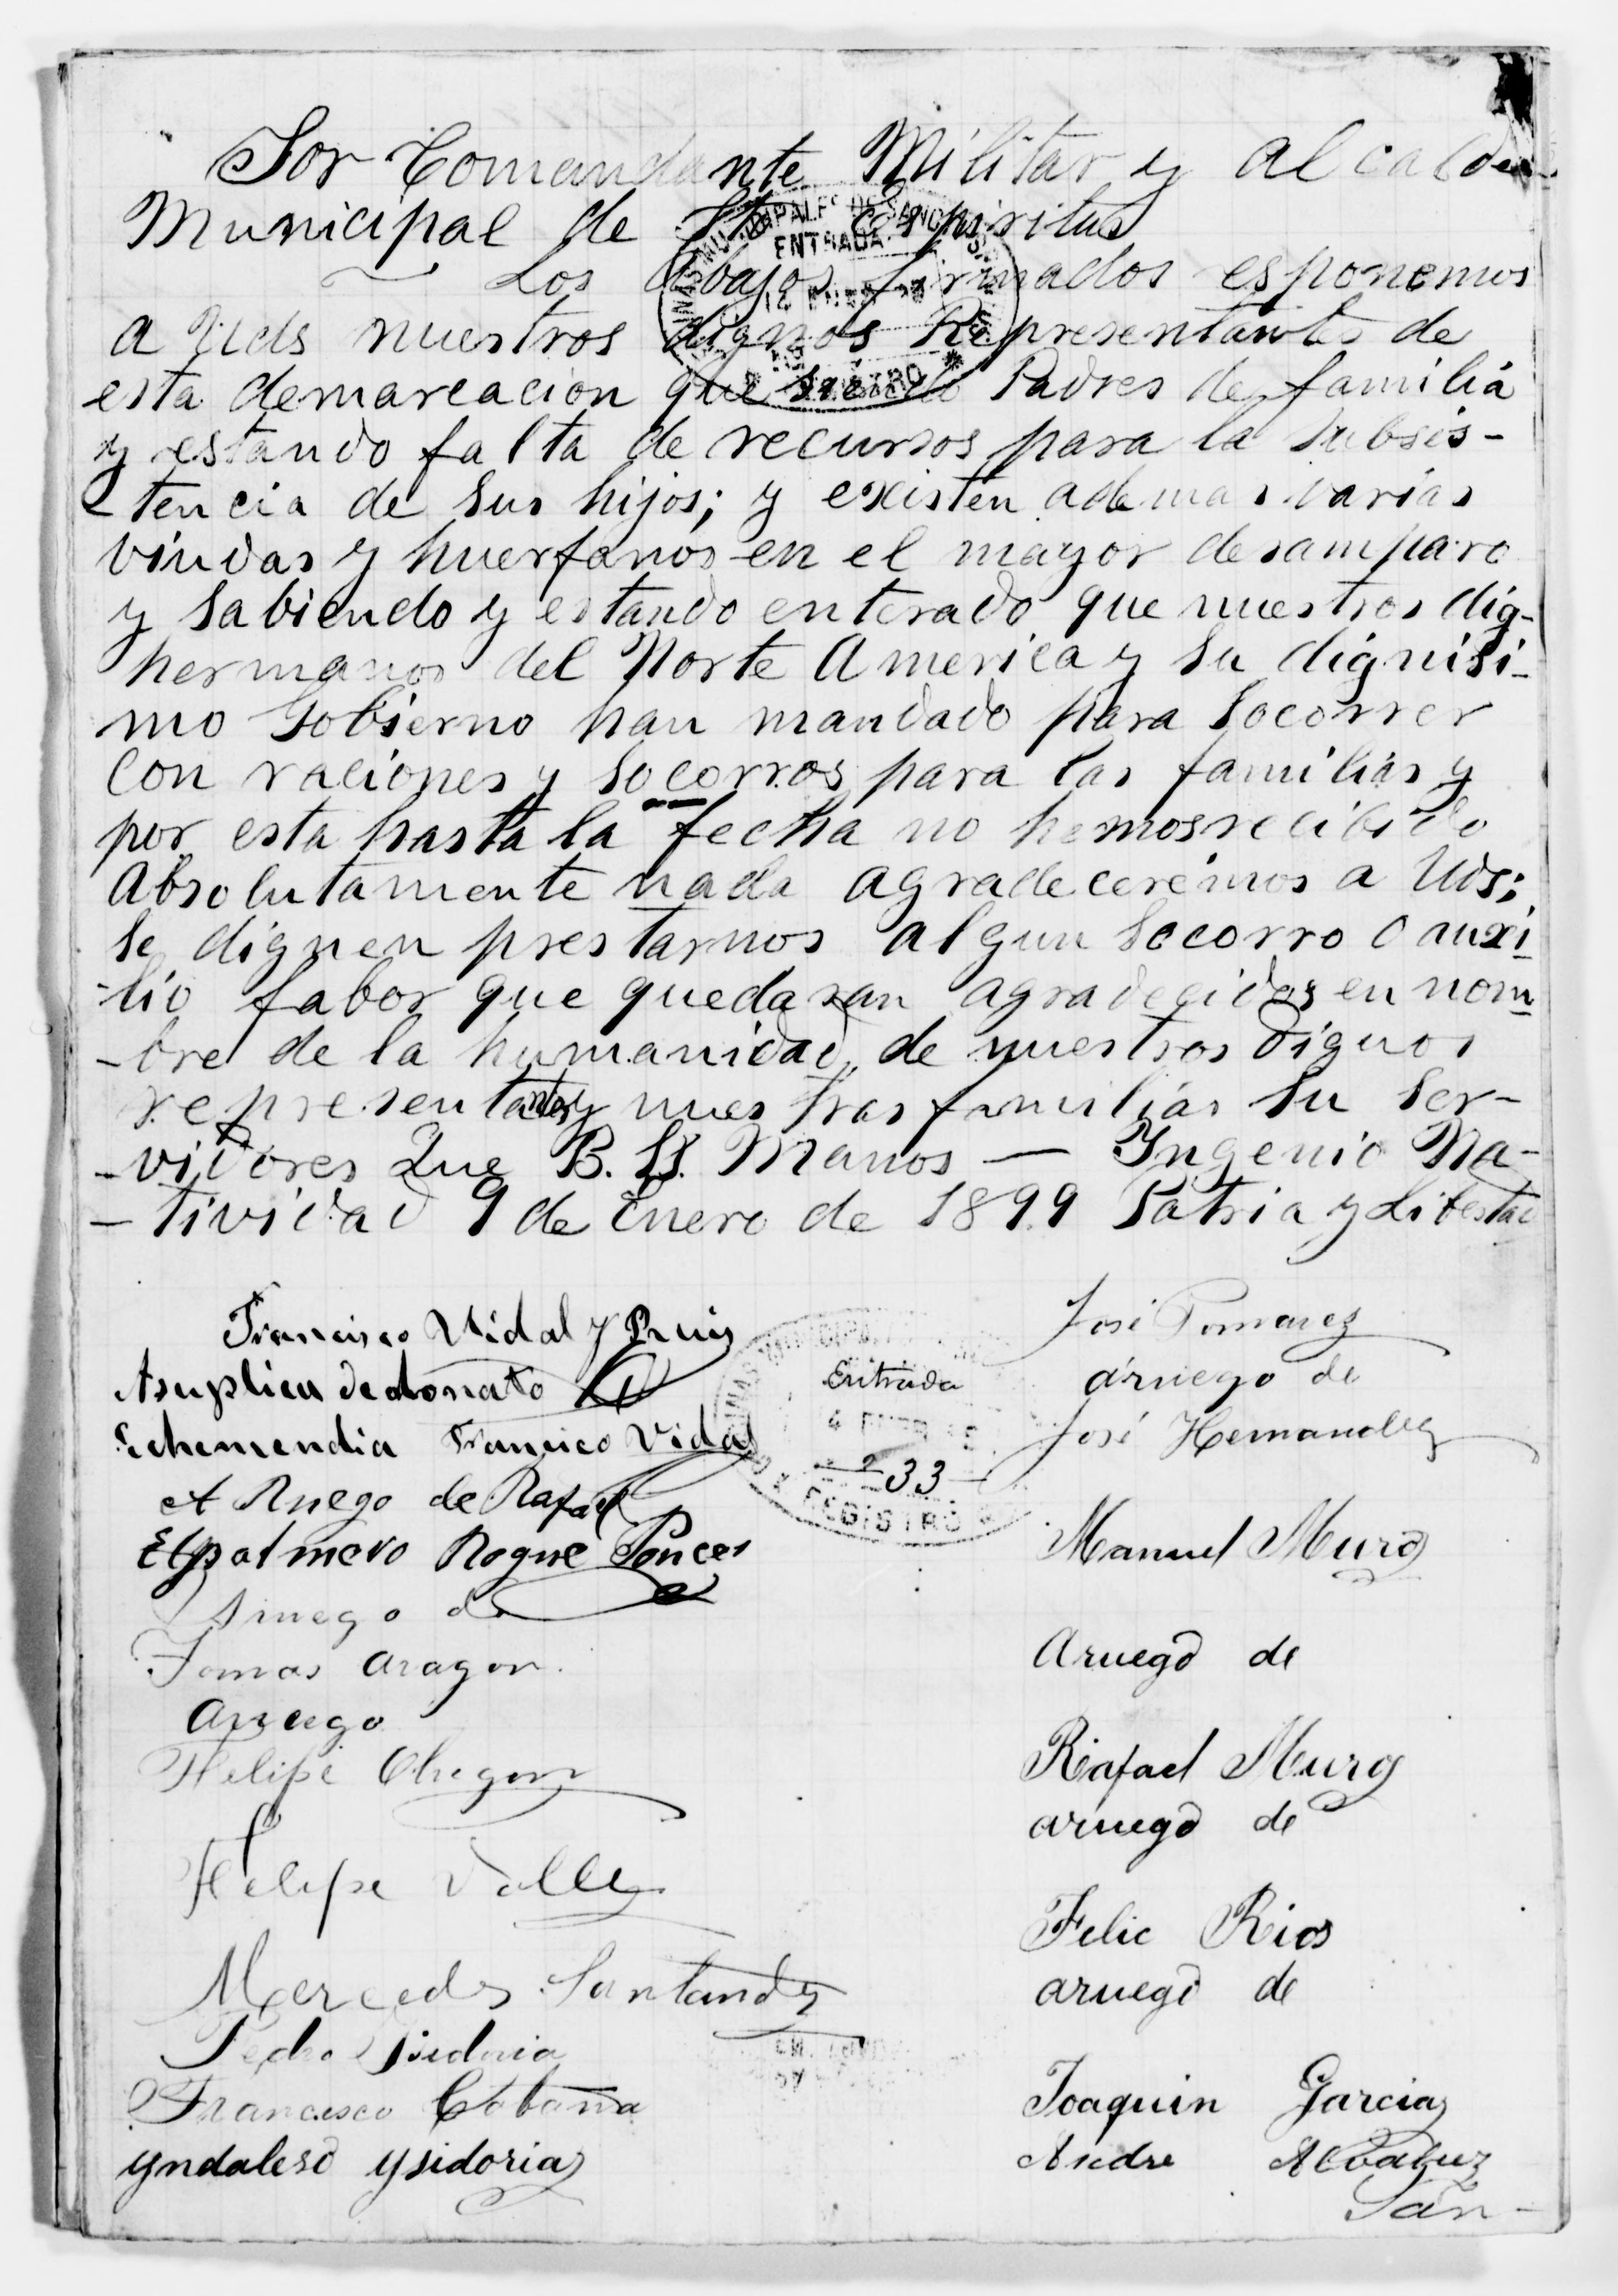 Sor Comandante Militar y Alcalde
Municipal de Sto Espiritus
Los abajos firmados esponemos
a Uds nuestros dignos Representantes de
esta demarcacion que siendo Padres de familia
y estando falta de recursos para la subsis-
-tencia de sus hijos; y existen ademas varias
viudas y huerfanos en el mayor desamparo
y sabiendo y estando enterado que nuestros dig-
hermanos del Norte America y su dignisi-
mo Gobierno han mandado para socorrer
con raciones y socorros para las familias y
por esta hasta la fecha no hemos recibido
absolutamente nada agradeceremos a Uds;
se dignen prestarnos algun socorro o auxi
-lio fabor que quedaran agradecidos en nom
-bre de la humanidad, de nuestros dignos
representantes y nuestras familias su ser-
-vidores Que B. SS. Manos — Ingenio Na-
-tividad 9 de Enero de 1899 Patria y Libertad
ENTRADA
REGISTRO
Francisco Vidal y Ruis
Asuplica de donato
Echemendia Francisco Vidal
A Ruego de Rafael
Elpalmero Roque Ponces
Aruego de
Tomas Aragon.
Aruego
Felipe Obregon
Felipe Valle
Mercedes Santander
Pedro
Francisco Cabana
yndaleso ysidoria
Entrada
33
REGISTRO
José Pomarez
áruego de
José Hernandez
Manuel Muro
Aruego de
Rafael Muro
aruego de
Felic Rios
aruego de
Joaquin Garcia
Andre
San-